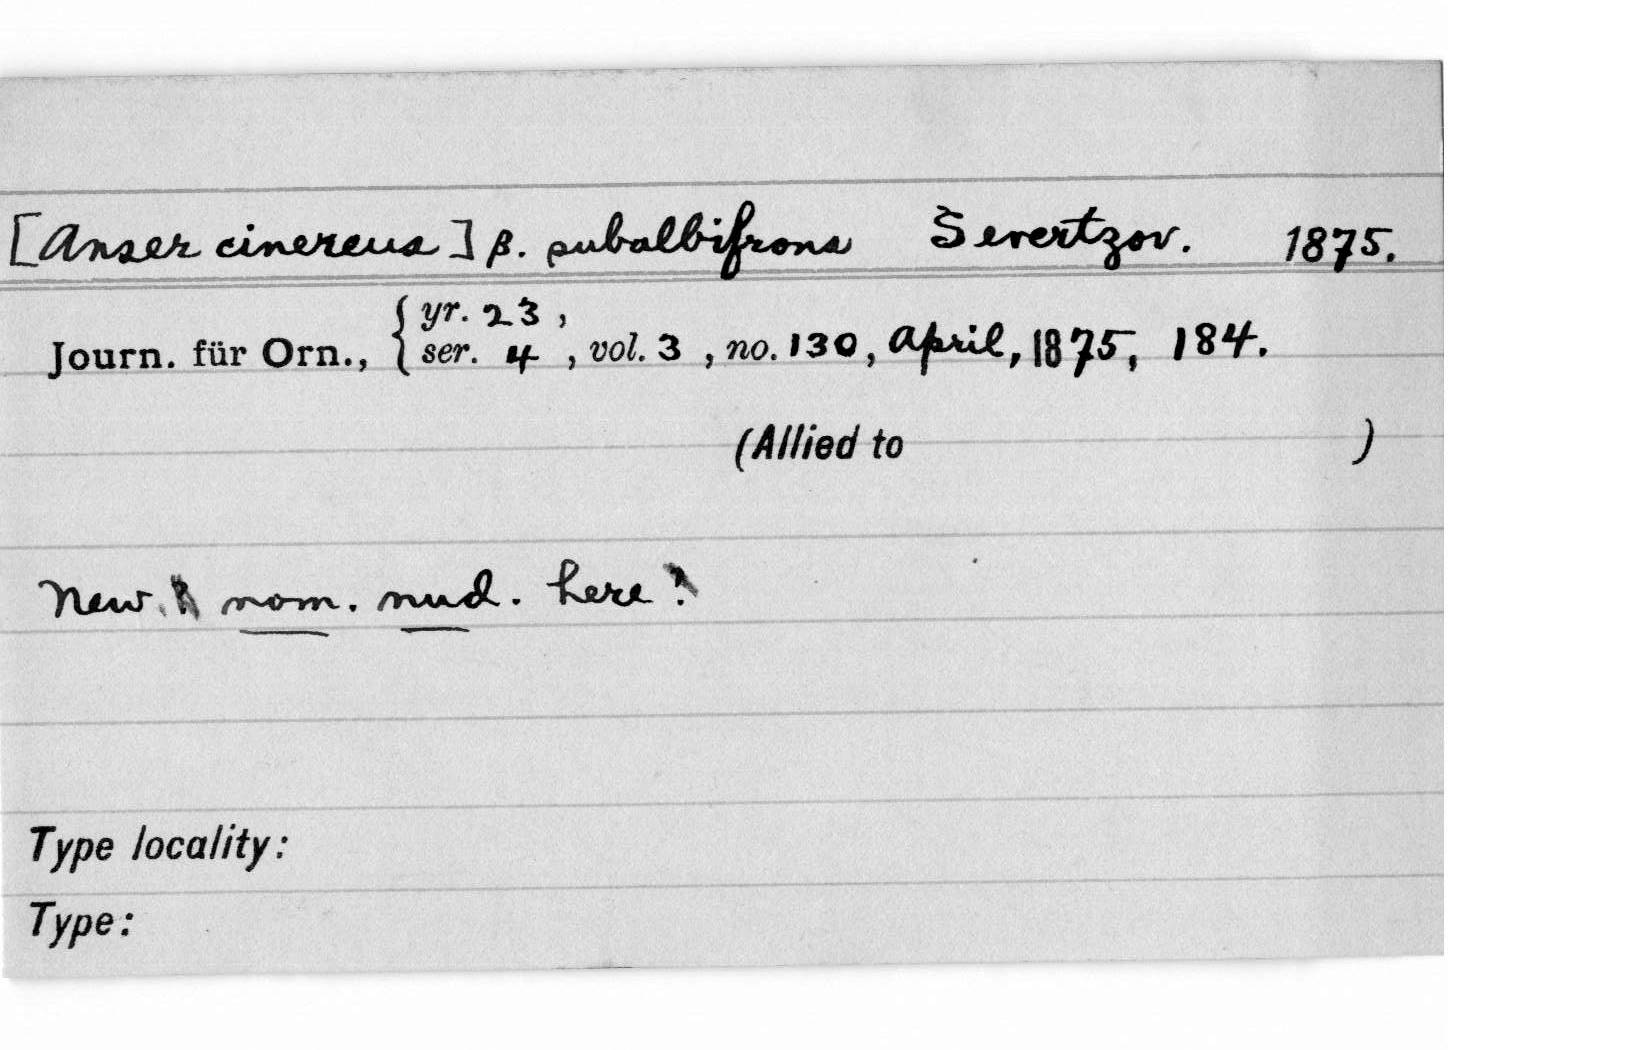 [Anser cinereus] β. subalbifrons Severtzov. 1875.
Journ. für Orn., { yr. 23 ,
ser. 4 , vol. 3 , no. 130, April, 1875, 184.
(Allied to )
New. nom. nud. here?
Type locality:
Type: